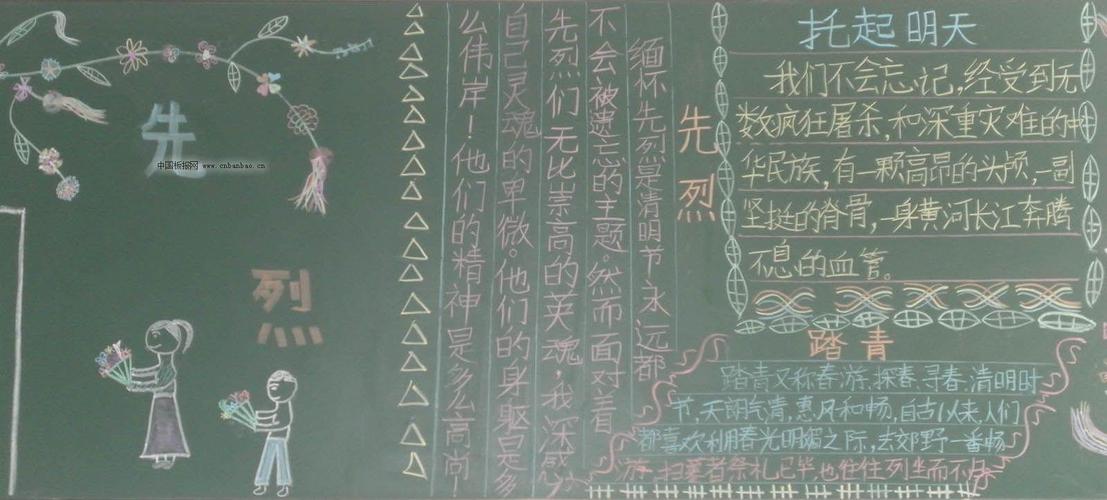 先
烈
中国板报网 www.cnbanbao.cn
先烈
缅怀先烈是清明节永远都
不会被遗忘的主题。然而面对着
先烈们无比崇高的英魂，我深感
自己灵魂的卑微。他们的身躯是多
么伟岸！他们的精神是多么高尚！
托起明天
我们不会忘记，经受到无
数疯狂屠杀，和深重灾难的中
华民族，有一颗高昂的头颅，一副
坚挺的脊骨，一身黄河长江奔腾
不息的血管。
踏青
踏青又称春游、探春、寻春，清明时
节，天朗气清，惠风和畅，自古以来人们
都喜欢利用春光明媚之际，去郊野一番畅
游，扫墓者祭礼已毕，也往往列坐而不归